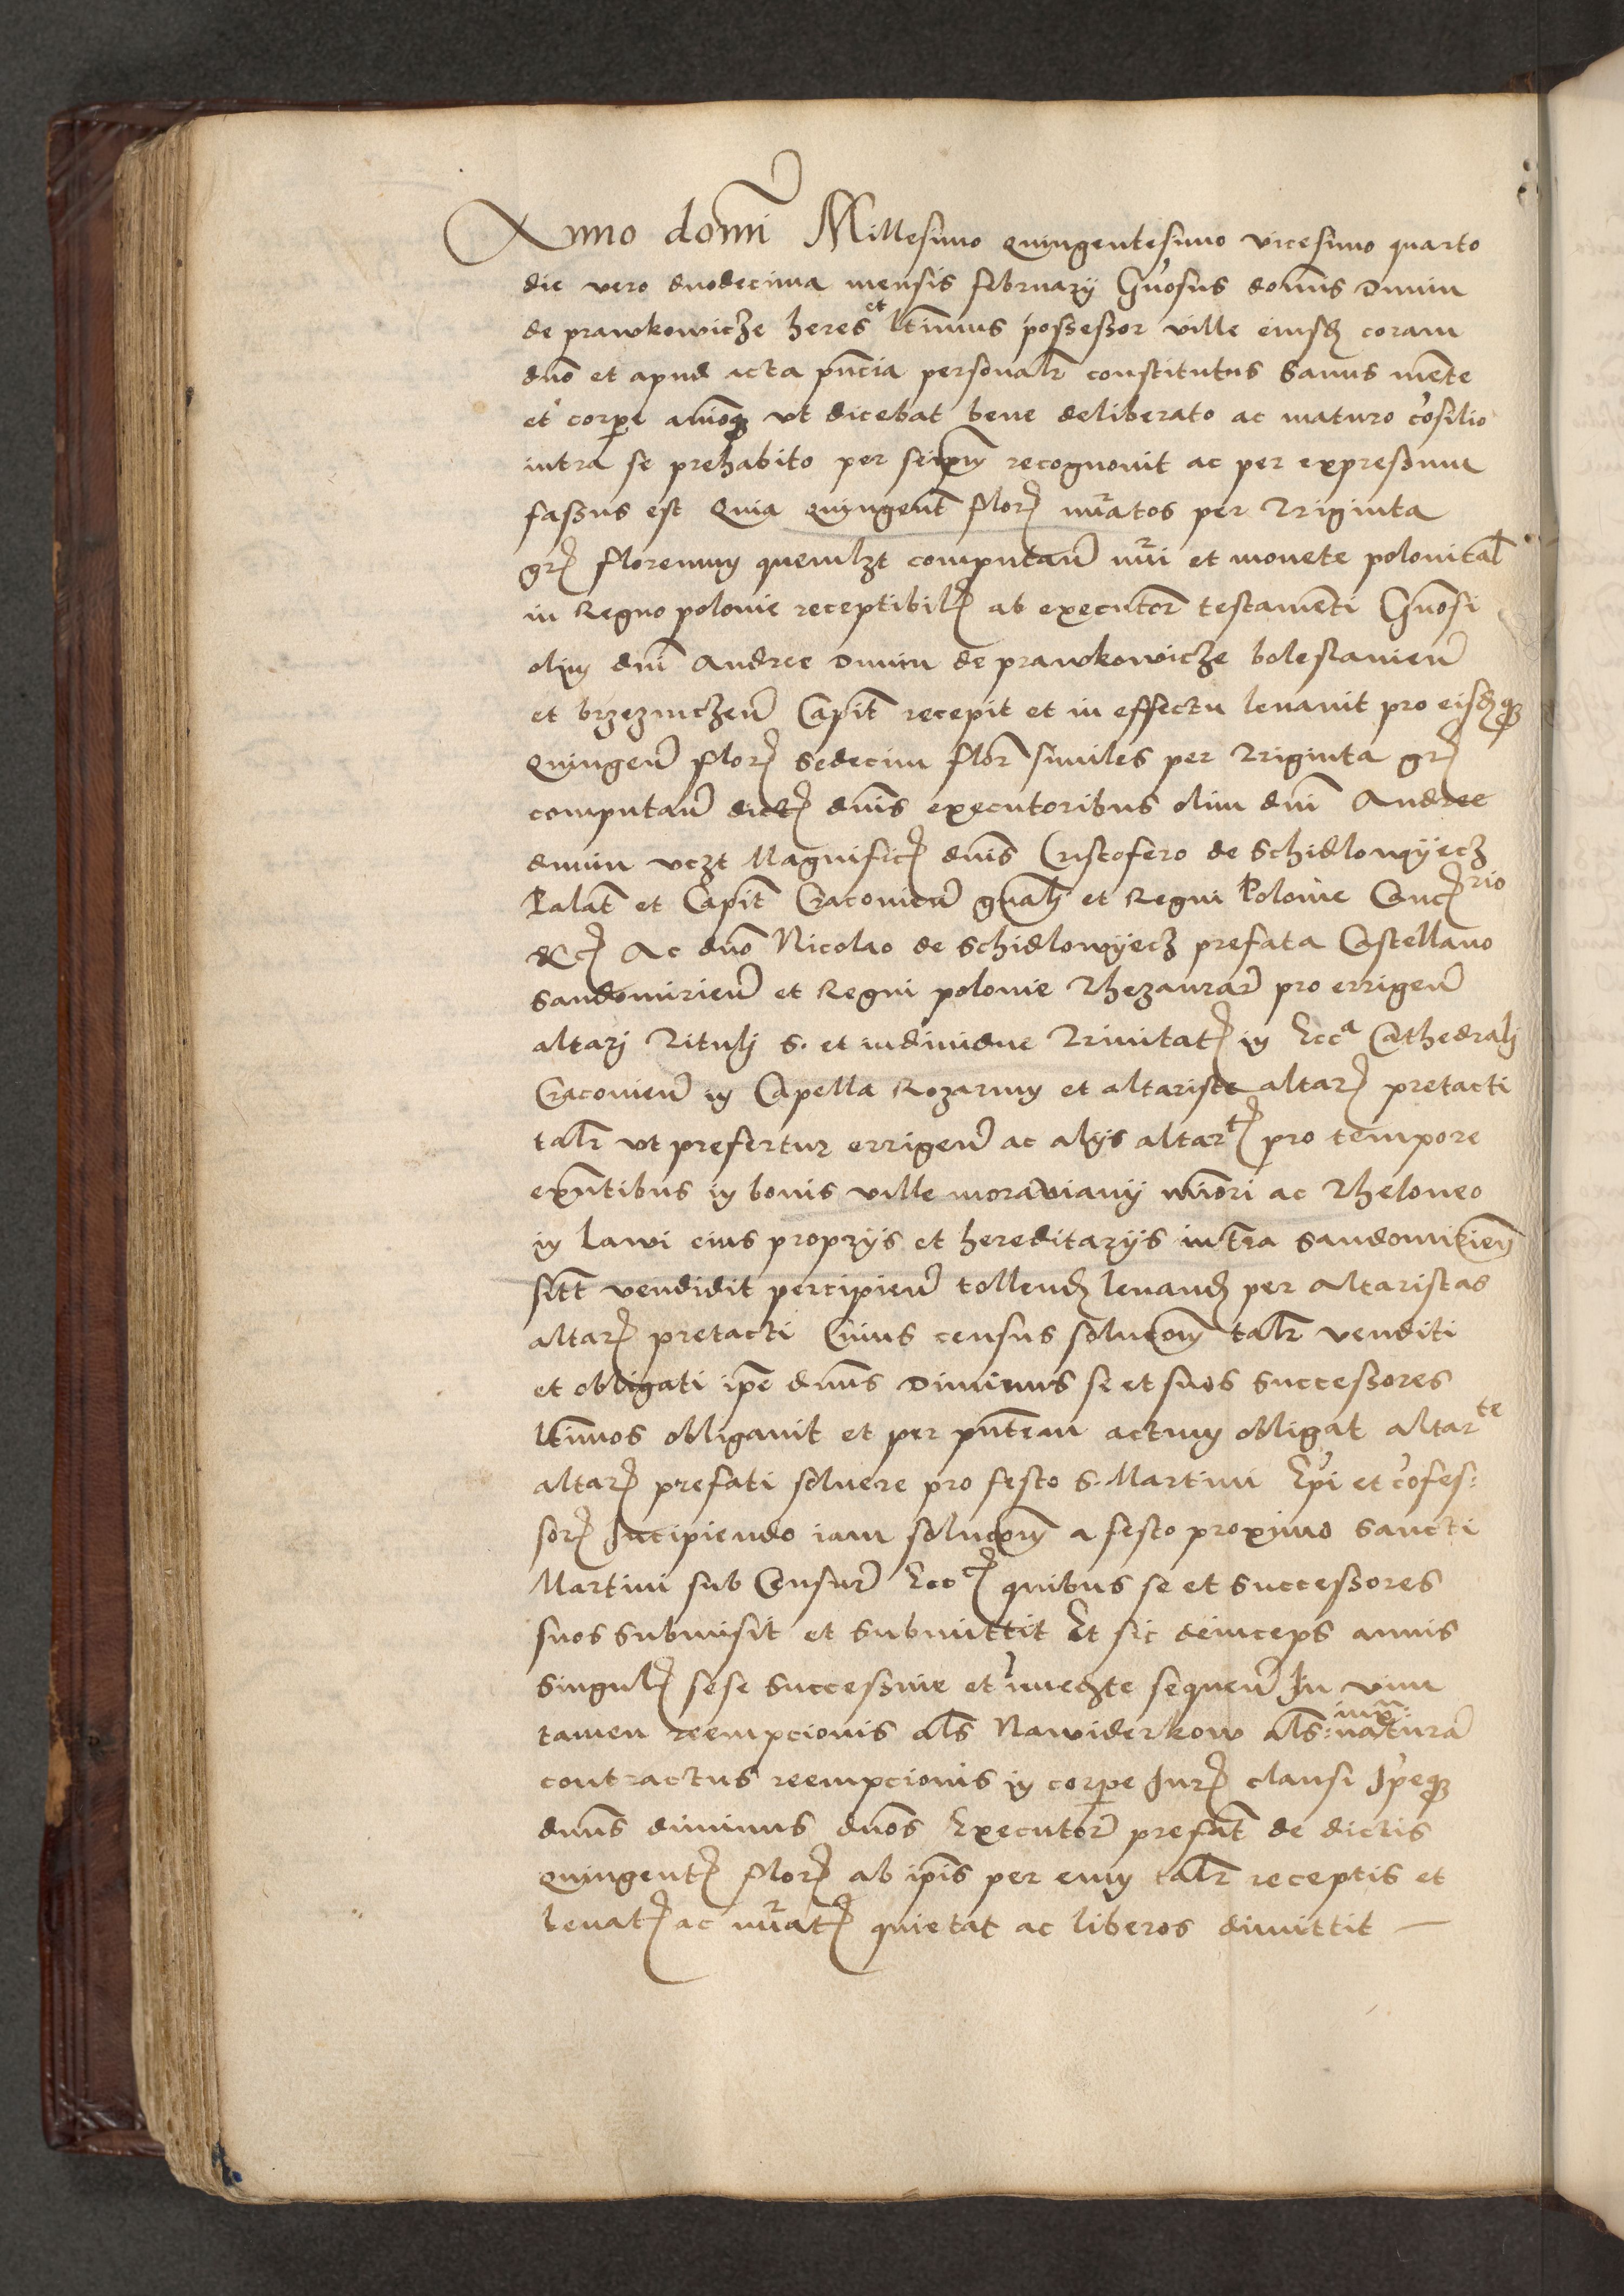 Anno domi Millesimo quingentesimo vicesimo quarto
die vero duodecima mensis february Gnosus domus Dimin
de prawkowicze heres et ltimus possessor ville eiusd coram
duo et apud acta pncia personalr constitutus sanus mente
et corpe aioq ut dicebat bene deliberato ac maturo cosilio
intra se prehabito per seipm recognouit ac per expressum
fassus est Quia quingent flor nuratos per Triginta
gr florenum quemlzt computan nuri et monete polonical
in Regno polonie receptibil ab executor testamenti Gnosi
olim dni Andree Dimin de prawkowicze bolestanien
et brzeznczen Capit recepit et in effectu leuauit pro eisdq
quingen flor sedecim flor similes per Triginta gr
computan dict dnis executoribus olim dni Andree
dimin vczt Magnific dnis Cristofero de Schidlowyecz
Palat et Capit Cracouien gnali et Regni Polonie Canc rio
&c Ac dno Nicolao de Schidlowyecz prefata Castellano
Sandomirien et Regni polonie Thezaurar pro errigen
altari Tituli S. et indiuidue Trinitat in Ecca Cathedrali
Cracouien in Capella Rozarum et altariste altar pretacti
talr ut prefertur errigen ac alys altart pro tempore
exntibus in bonis ville morawiany miori ac Theloneo
in Lawi eius proprys et hereditarys in Terra Sandomirien
sitt vendidit percipien tollend leuand per altaristas
altar pretacti Cuius census solucom talr venditi
et obligati ipe dnus Diminus se et suos successores
ltimos obligauit et per pntem actum obligat altarte
altar prefati soluere pro festo S. Martini Epi et cofes:
sor Incipiendo iam solucom a festo proximo Sancti
Martini sub Censur Ecc quibus se et successores
suos submisit et submittit Et sic deinceps annis
singul sese successiue et imedte sequen In vim
tamen reempcionis als Nawiderkow als: iuxta: natura
contractus reempcionis in corpe Jur clausi Ipeq
dnus diminus dnos Executor prefat de dictis
quingent flor ab ipis per eum talr receptis et
leuat ac nurat quietat ac liberos dimittit —